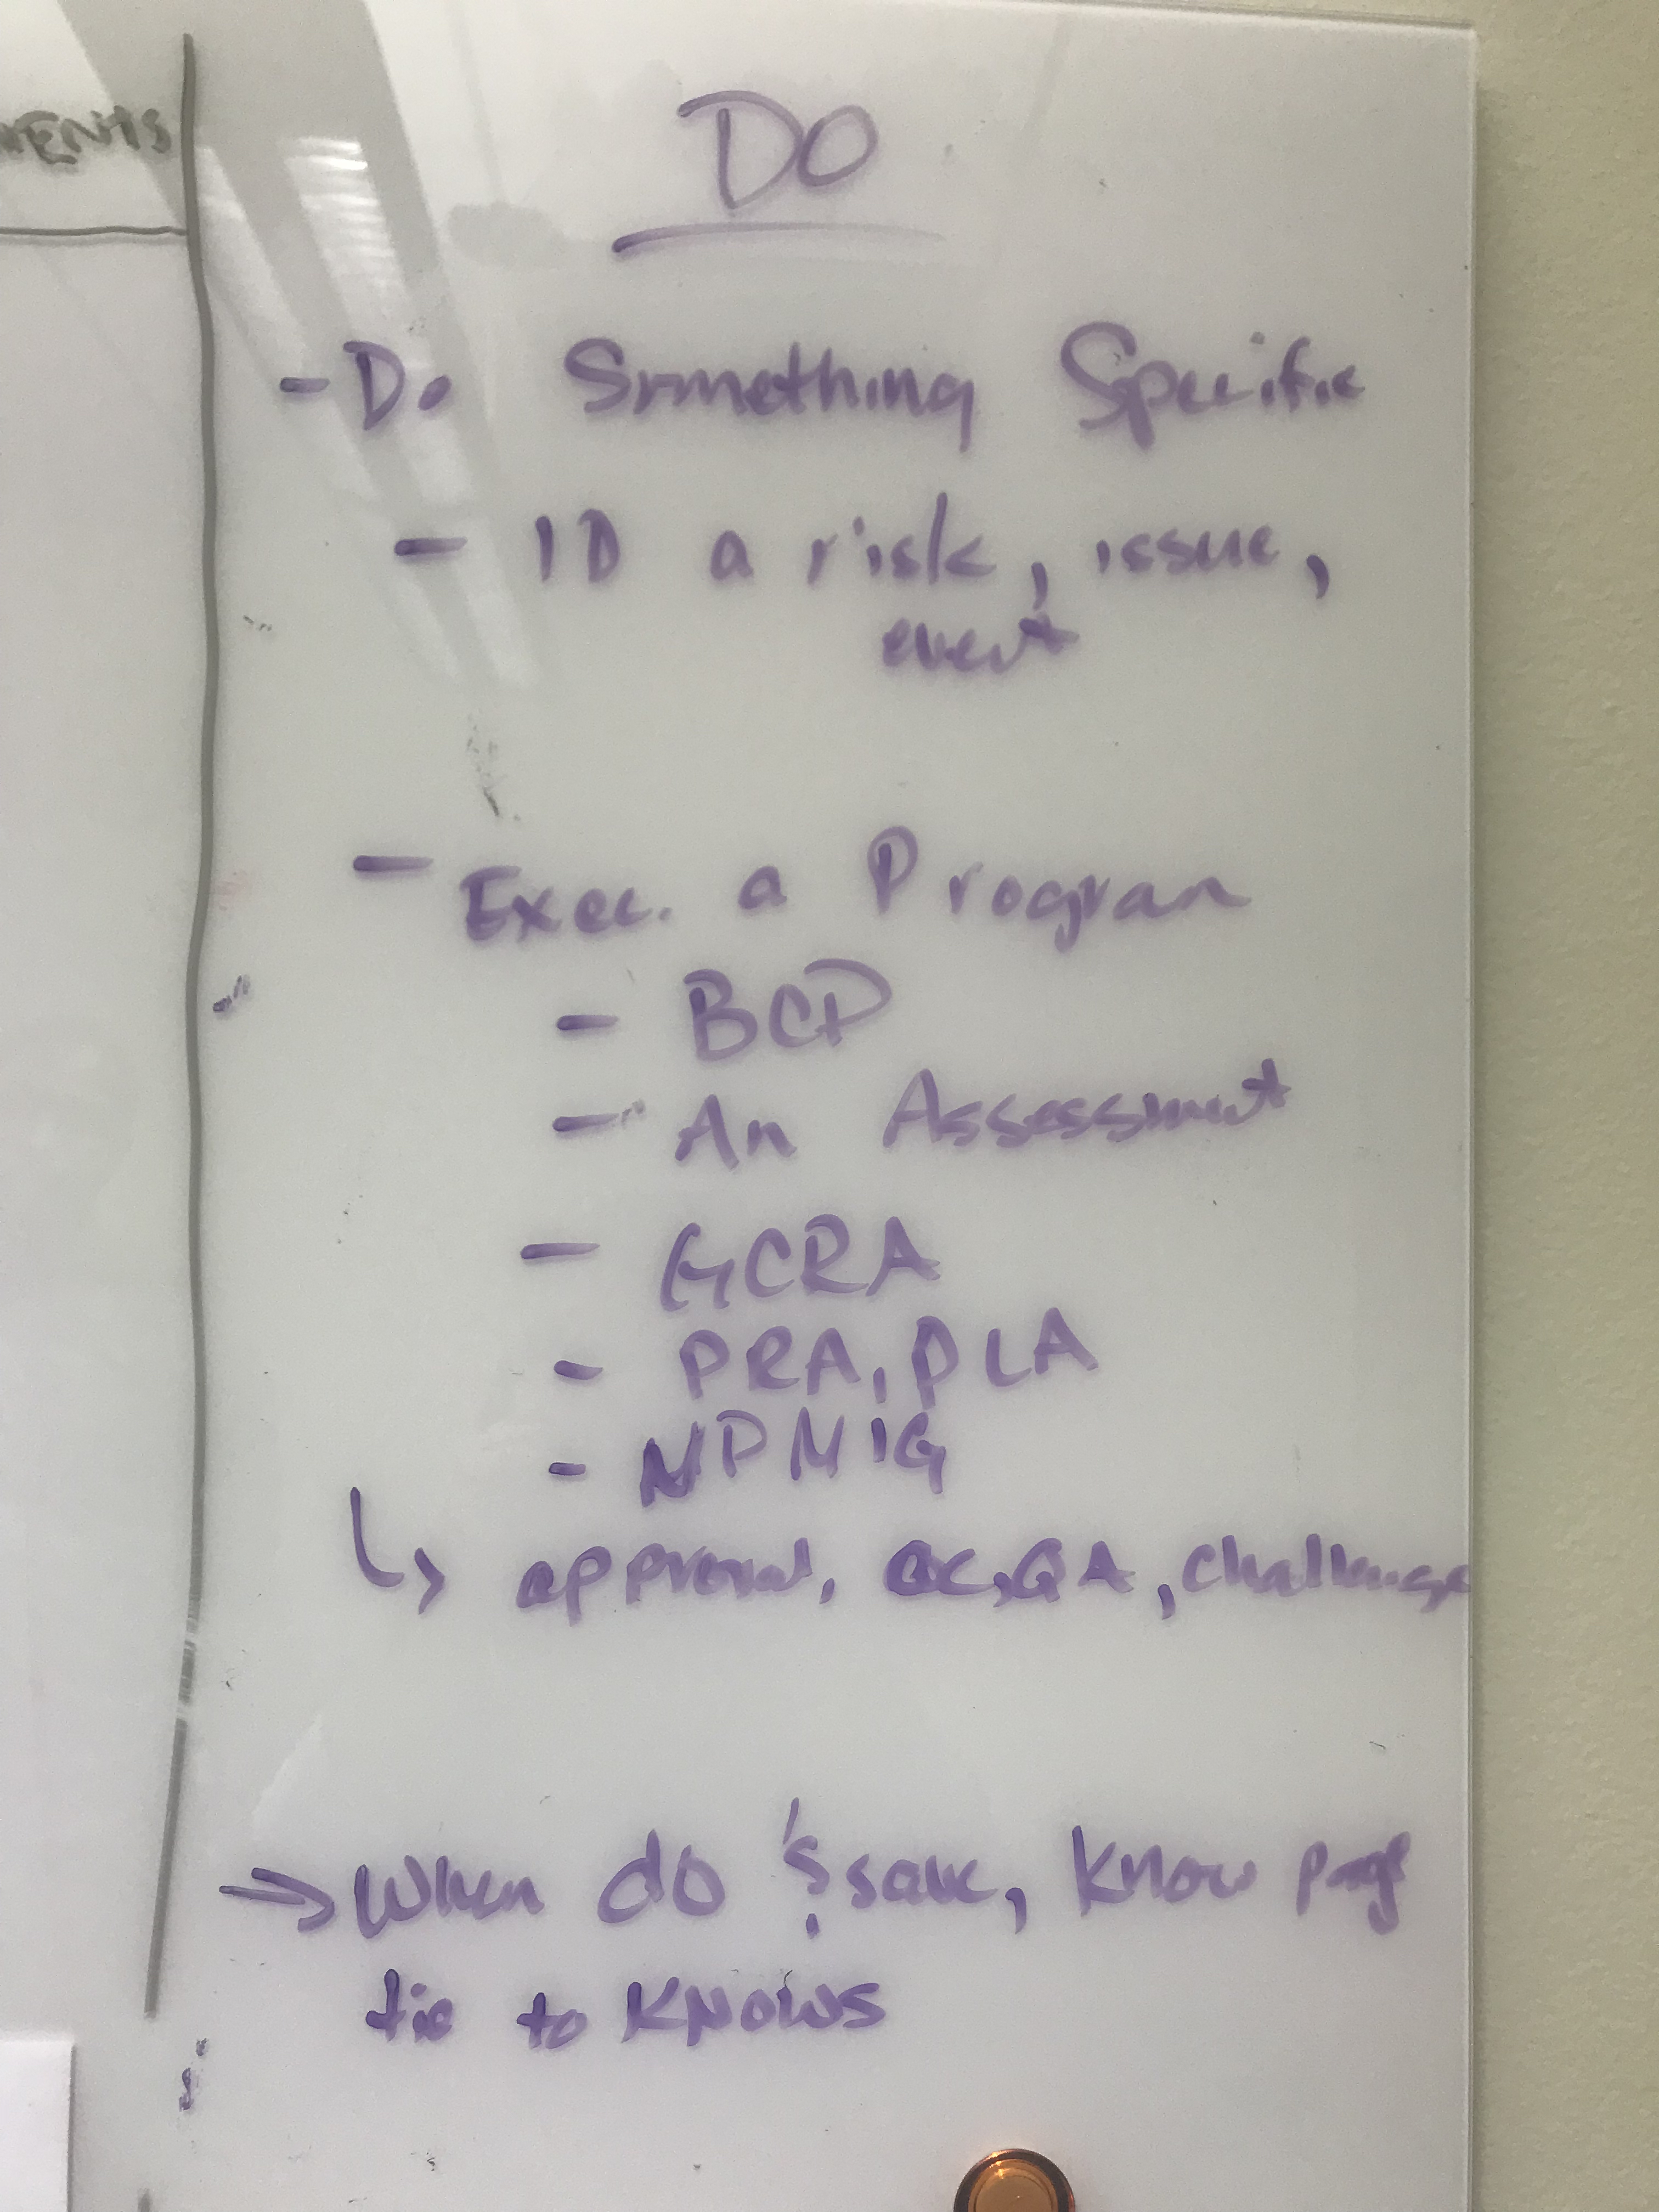 DO
- Do Something Specific
- ID a risk, issue,
event
- Exec. a Program
- BCP
- An Assessment
- GCRA
- PRA, PLA
- NPMIG
↳ approval, QC, QA, challenge
→ When do & save, know page
tie to KNOWS